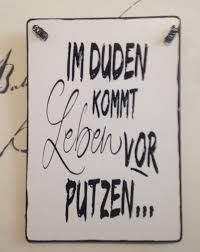 IM DUDEN
KOMMT
Leben
VOR
PUTZEN...